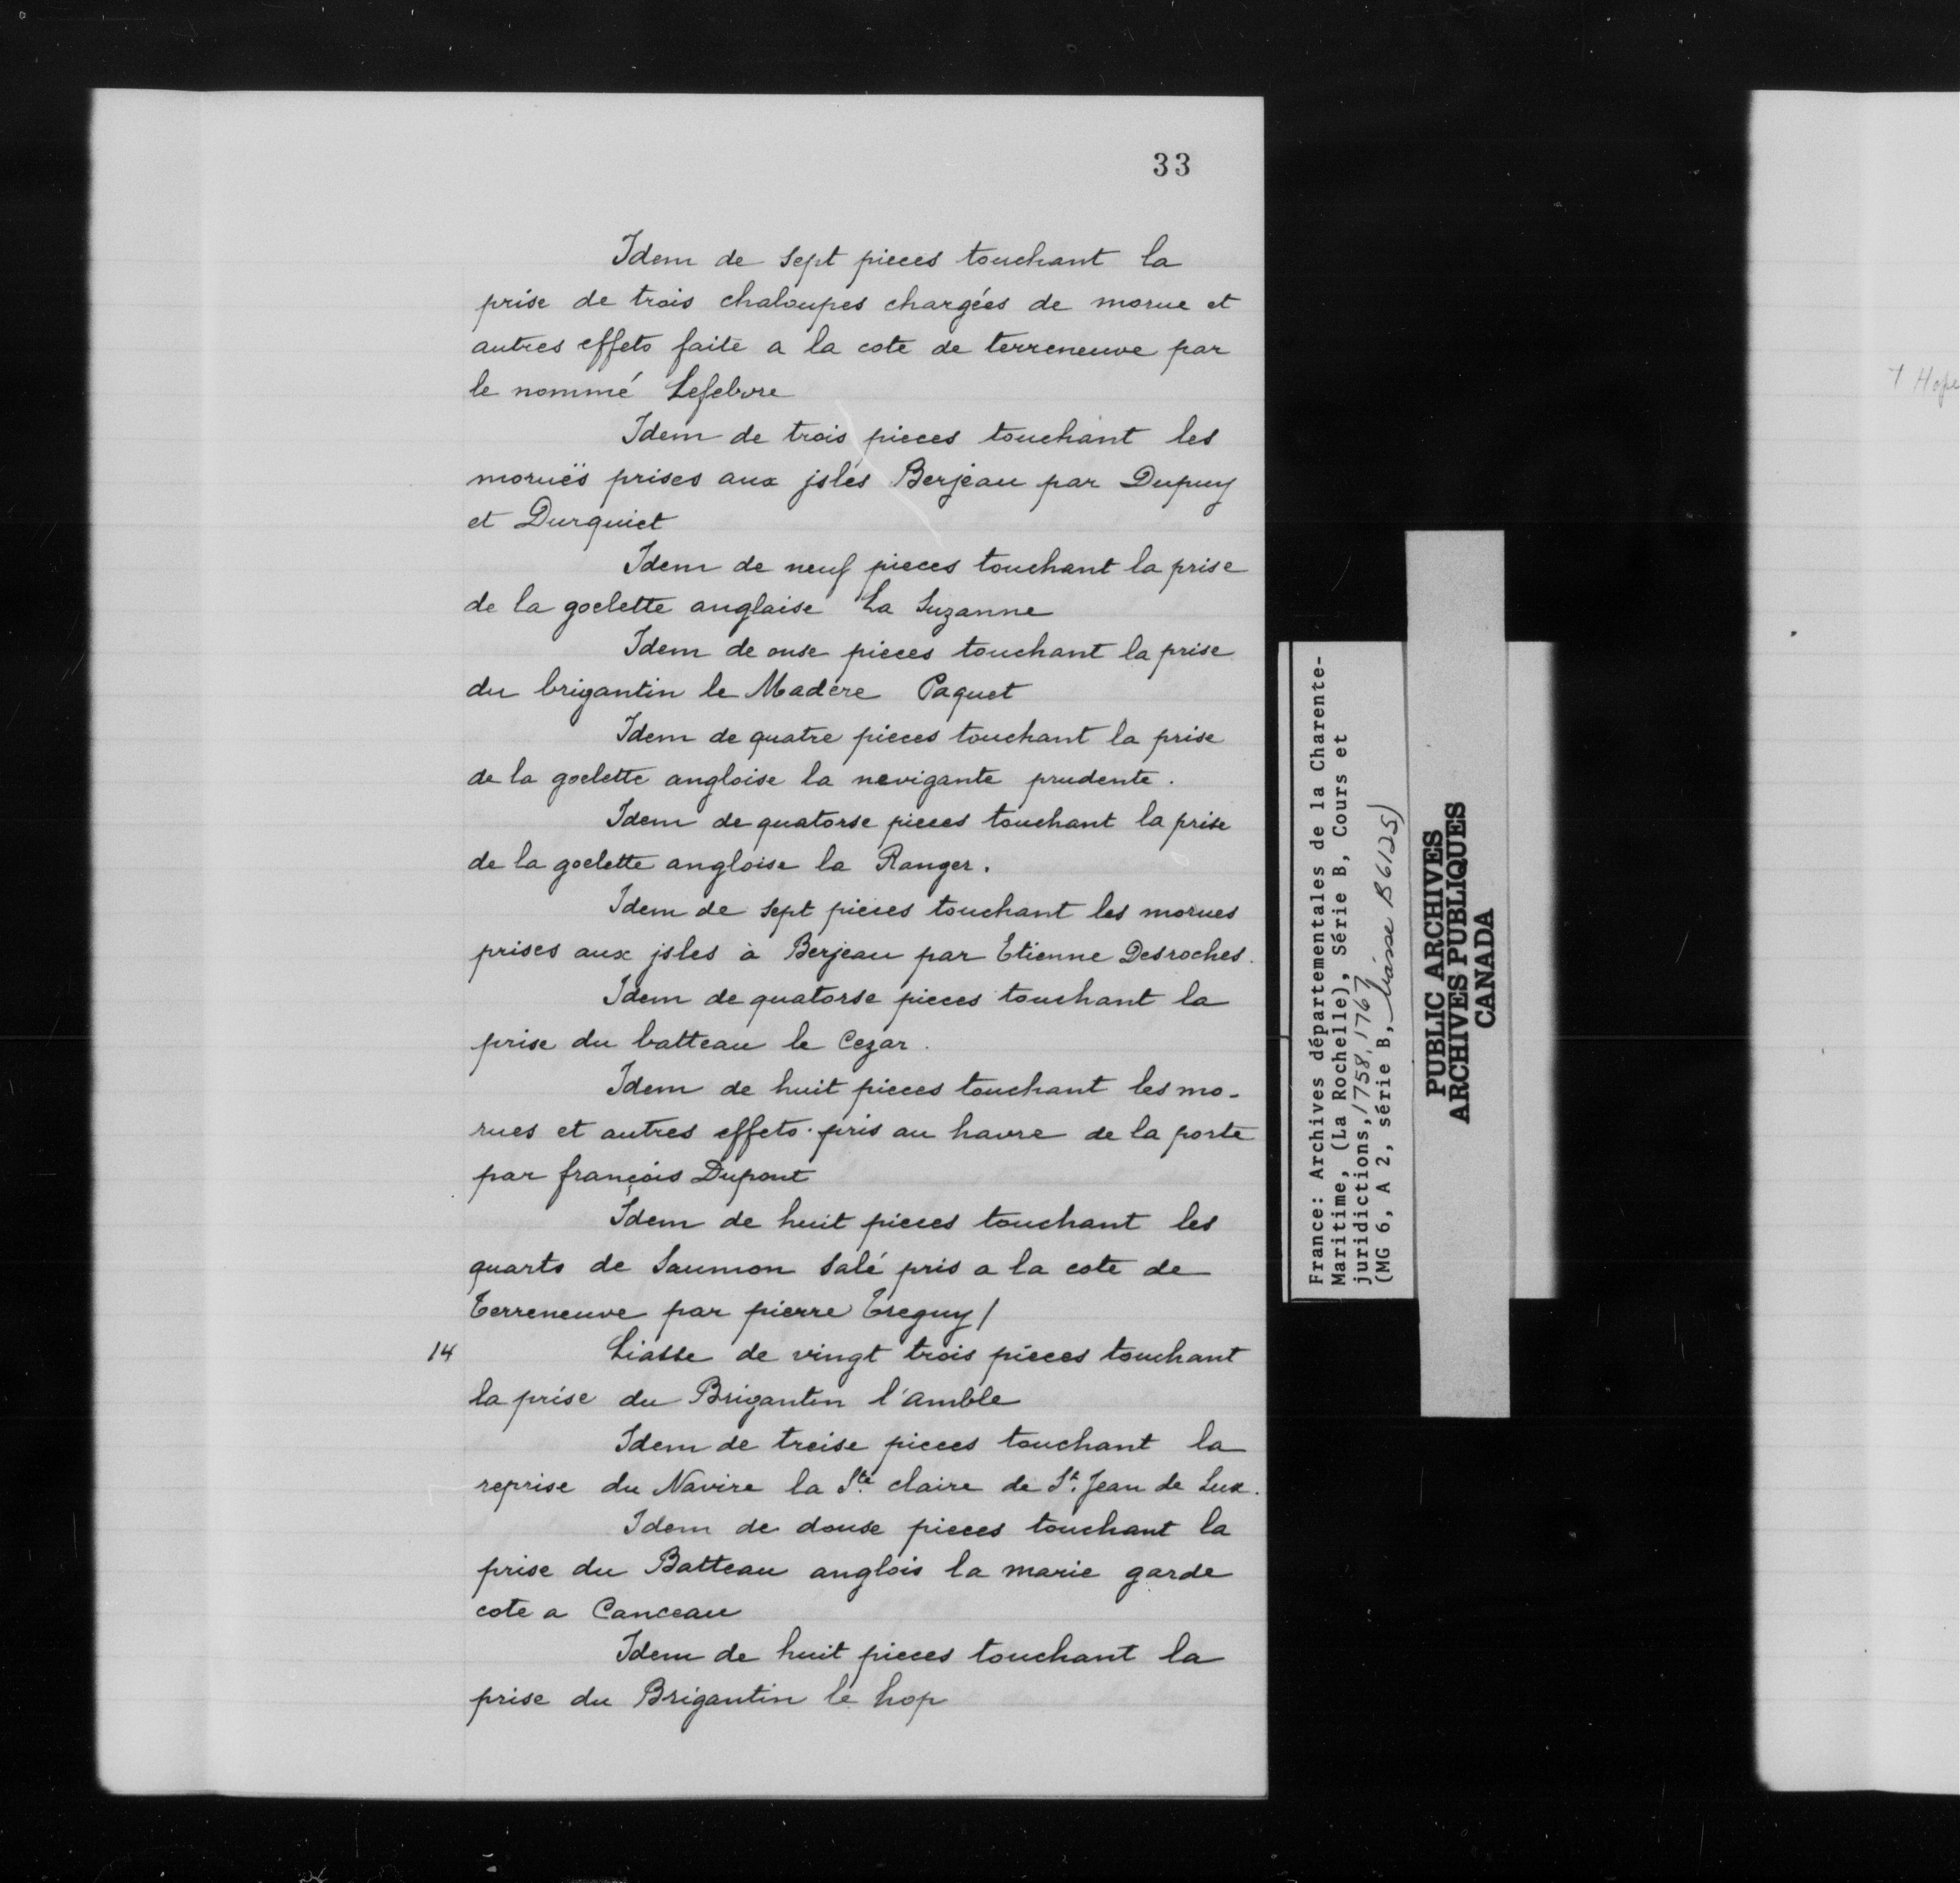 33
Idem de sept pieces touchant la
prise de trois chaloupes chargées de morue et
autres effets faite a la cote de terreneuve par
le nommé Lefebvre
Idem de trois pieces touchant les
moruës prises aux jsles Berjeau par Dupuy
et Durquiet
Idem de neuf pieces touchant la prise
de la goelette anglaise La Suzanne
Idem de onse pieces touchant la prise
du brigantin le Madére Paquet
Idem de quatre pieces touchant la prise
de la goelette angloise la nevigante prudente.
Idem de quatorse pieces touchant la prise
de la goelette angloise la Ranger.
Idem de sept pieces touchant les morues
prises aux jsles à Berjeau par Etienne Desroches.
Idem de quatorse pieces touchant la
prise du batteau le Cezar.
Idem de huit pieces touchant les mo-
rues et autres effets pris au havre de la porte
par françois Dupont
Idem de huit pieces touchant les
quarts de Saumon Salé pris a la cote de
Terreneuve par pierre Treguy /
14 Liasse de vingt trois pieces touchant
la prise du Brigantin l'amble
Idem de treise pieces touchant la
reprise du Navire la Ste claire de St. Jean de Lux.
Idem de douse pieces touchant la
prise du Batteau anglois la marie garde
cote a Canceau
Idem de huit pieces touchant la
prise du Brigantin le hop
France: Archives départementales de la Charente-
Maritime, (La Rochelle), Série B, Cours et
juridictions, 1758, 1767
(MG 6, A 2, série B, liasse B6125)
PUBLIC ARCHIVES
ARCHIVES PUBLIQUES
CANADA
Hope